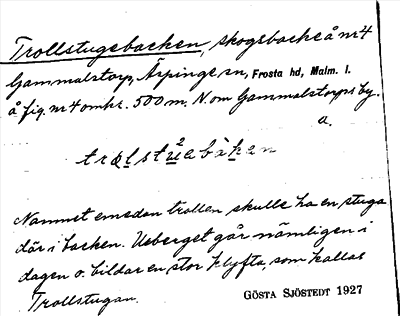 Trollstugebacken, skogsbacke å nr 4
Gammalstorp, Ärpinge sn, Frosta hd, Malm. l.
å fig. nr 4 omkr. 500 m. N. om Gammalstorps by.
a.
Namnet emedan trollen skulle ha en stuga
där i backen. Ueberget går nämligen i
dagen o. bildar en stor klyfta, som kallas
Trollstugan.
GÖSTA SJÖSTEDT 1927